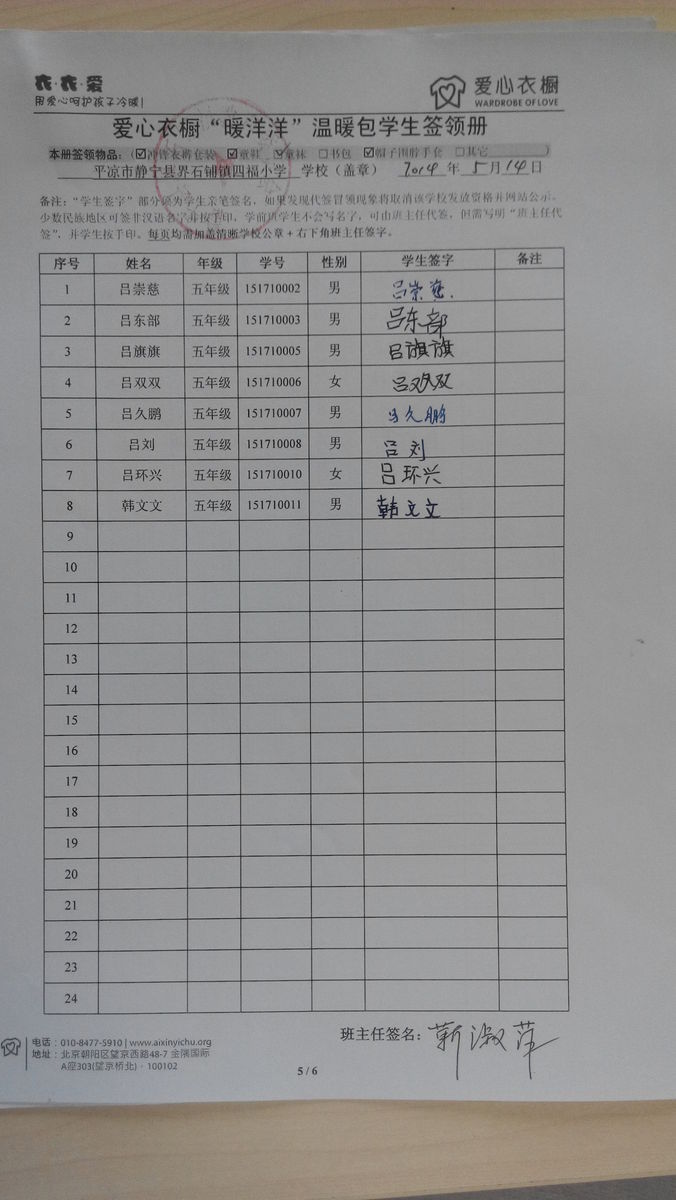 衣·衣·爱
用爱心呵护孩子冷暖!
爱心衣橱
WARDROBE OF LOVE
爱心衣橱“暖洋洋”温暖包学生签领册
本册签领物品:(☑冲锋衣裤套装 ☑童鞋 ☑童袜 □书包 ☑帽子围脖手套 □其它 )
平凉市静宁县界石铺镇四福小学 学校(盖章) 2014 年 5 月 14 日
备注:“学生签字”部分须为学生亲笔签名,如果发现代签冒领现象将取消该学校发放资格并网站公示。
少数民族地区可签非汉语名字并按手印,学前班学生不会写名字,可由班主任代签,但需写明“班主任代
签”,并学生按手印。每页均需加盖清晰学校公章+右下角班主任签字。
序号 姓名 年级 学号 性别 学生签字 备注
1 吕崇慈 五年级 151710002 男 吕崇慈
2 吕东部 五年级 151710003 男 吕东部
3 吕旗旗 五年级 151710005 男 吕旗旗
4 吕双双 五年级 151710006 女 吕双双
5 吕久鹏 五年级 151710007 男 吕久鹏
6 吕刘 五年级 151710008 男 吕刘
7 吕环兴 五年级 151710010 女 吕环兴
8 韩文文 五年级 151710011 男 韩文文
9
10
11
12
13
14
15
16
17
18
19
20
21
22
23
24
班主任签名: 靳淑萍
电话:010-8477-5910 | www.aixinyichu.org
地址:北京朝阳区望京西路48-7 金隅国际
A座303(望京桥北)·100102
5 / 6